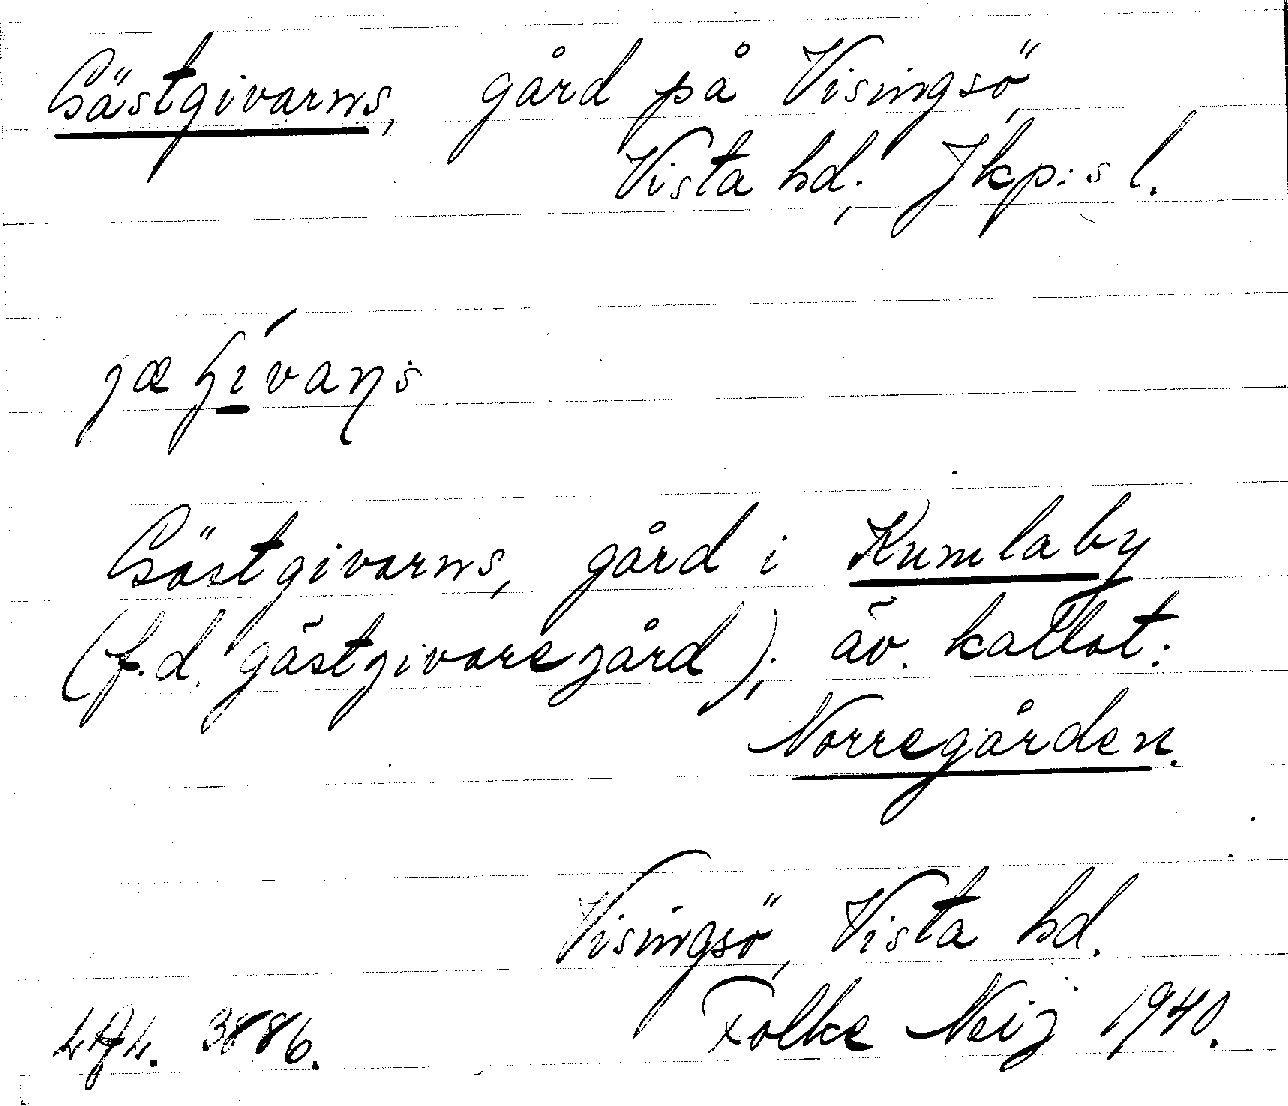 Gästgivarns, gård på Visingsö,
Vista hd; Jkp:s l.
Gästgivarns, gård i Kumlaby
(f.d. gästgivaregård); äv. kallat:
Norregården.
Visingsö, Vista hd.
3886. Folke Neij 1940.